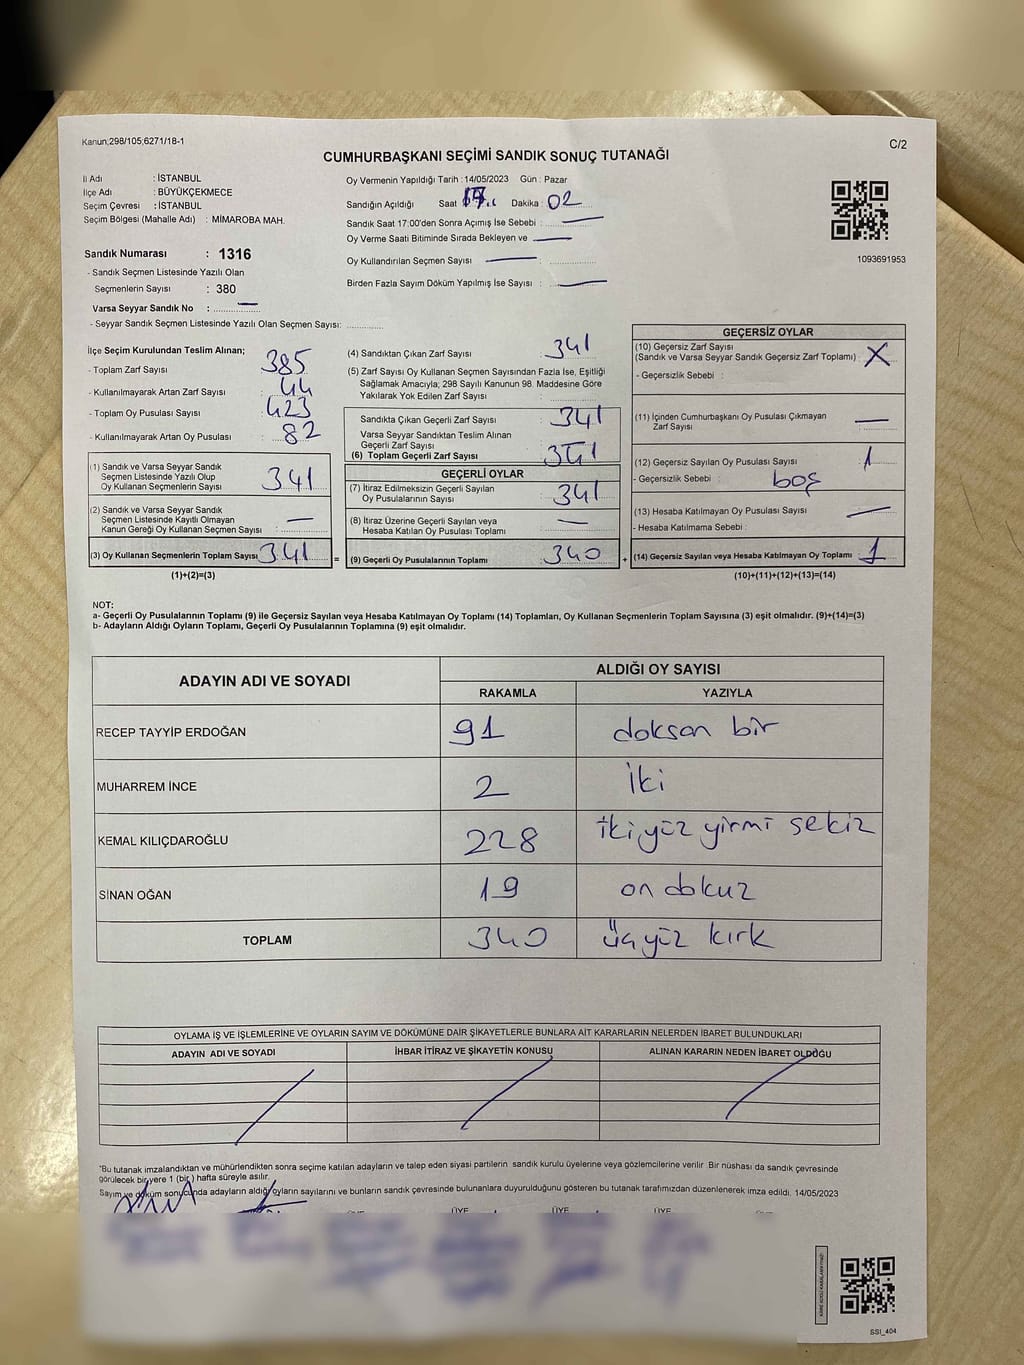 Kanun;298/105;6271/18-1
C/2
CUMHURBAŞKANI SEÇİMİ SANDIK SONUÇ TUTANAĞI
İl Adı : İSTANBUL
İlçe Adı : BÜYÜKÇEKMECE
Seçim Çevresi : İSTANBUL
Seçim Bölgesi (Mahalle Adı) : MİMAROBA MAH.
Sandık Numarası : 1316
- Sandık Seçmen Listesinde Yazılı Olan
Seçmenlerin Sayısı : 380
Varsa Seyyar Sandık No :
- Seyyar Sandık Seçmen Listesinde Yazılı Olan Seçmen Sayısı:
Oy Vermenin Yapıldığı Tarih :14/05/2023 Gün : Pazar
Sandığın Açıldığı Saat Dakika : 02
Sandık Saat 17:00'den Sonra Açımış İse Sebebi :
Oy Verme Saati Bitiminde Sırada Bekleyen ve
Oy Kullandırılan Seçmen Sayısı :
Birden Fazla Sayım Döküm Yapılmış İse Sayısı :
1093691953
İlçe Seçim Kurulundan Teslim Alınan;
- Toplam Zarf Sayısı : 385
- Kullanılmayarak Artan Zarf Sayısı : 44
- Toplam Oy Pusulası Sayısı : 423
- Kullanılmayarak Artan Oy Pusulası : 82
(1) Sandık ve Varsa Seyyar Sandık
Seçmen Listesinde Yazılı Olup
Oy Kullanan Seçmenlerin Sayısı : 341
(2) Sandık ve Varsa Seyyar Sandık
Seçmen Listesinde Kayıtlı Olmayan
Kanun Gereği Oy Kullanan Seçmen Sayısı :
(3) Oy Kullanan Seçmenlerin Toplam Sayısı: 341
(1)+(2)=(3)
(4) Sandıktan Çıkan Zarf Sayısı : 341
(5) Zarf Sayısı Oy Kullanan Seçmen Sayısından Fazla İse, Eşitliği
Sağlamak Amacıyla; 298 Sayılı Kanunun 98. Maddesine Göre
Yakılarak Yok Edilen Zarf Sayısı :
Sandıkta Çıkan Geçerli Zarf Sayısı : 341
Varsa Seyyar Sandıktan Teslim Alınan
Geçerli Zarf Sayısı :
(6) Toplam Geçerli Zarf Sayısı : 341
GEÇERLİ OYLAR
(7) İtiraz Edilmeksizin Geçerli Sayılan
Oy Pusulalarının Sayısı : 341
(8) İtiraz Üzerine Geçerli Sayılan veya
Hesaba Katılan Oy Pusulası Toplamı :
= (9) Geçerli Oy Pusulalarının Toplamı : 340 +
GEÇERSİZ OYLAR
(10) Geçersiz Zarf Sayısı
(Sandık ve Varsa Seyyar Sandık Geçersiz Zarf Toplamı) : X
- Geçersizlik Sebebi :
(11) İçinden Cumhurbaşkanı Oy Pusulası Çıkmayan
Zarf Sayısı :
(12) Geçersiz Sayılan Oy Pusulası Sayısı : 1
- Geçersizlik Sebebi : boş
(13) Hesaba Katılmayan Oy Pusulası Sayısı :
- Hesaba Katılmama Sebebi :
(14) Geçersiz Sayılan veya Hesaba Katılmayan Oy Toplamı : 1
(10)+(11)+(12)+(13)=(14)
NOT:
a- Geçerli Oy Pusulalarının Toplamı (9) ile Geçersiz Sayılan veya Hesaba Katılmayan Oy Toplamı (14) Toplamları, Oy Kullanan Seçmenlerin Toplam Sayısına (3) eşit olmalıdır. (9)+(14)=(3)
b- Adayların Aldığı Oyların Toplamı, Geçerli Oy Pusulalarının Toplamına (9) eşit olmalıdır.
ADAYIN ADI VE SOYADI ALDIĞI OY SAYISI
RAKAMLA YAZIYLA
RECEP TAYYİP ERDOĞAN 91 doksan bir
MUHARREM İNCE 2 iki
KEMAL KILIÇDAROĞLU 228 ikiyüz yirmi sekiz
SİNAN OĞAN 19 on dokuz
TOPLAM 340 üçyüz kırk
OYLAMA İŞ VE İŞLEMLERİNE VE OYLARIN SAYIM VE DÖKÜMÜNE DAİR ŞİKAYETLERLE BUNLARA AİT KARARLARIN NELERDEN İBARET BULUNDUKLARI
ADAYIN ADI VE SOYADI İHBAR İTİRAZ VE ŞİKAYETİN KONUSU ALINAN KARARIN NEDEN İBARET OLDUĞU
*Bu tutanak imzalandıktan ve mühürlendikten sonra seçime katılan adayların ve talep eden siyasi partilerin sandık kurulu üyelerine veya gözlemcilerine verilir Bir nüshası da sandık çevresinde
görülecek bir yere 1 (bir) hafta süreyle asılır.
Sayım ve döküm sonucunda adayların aldığı oyların sayılarını ve bunların sandık çevresinde bulunanlara duyurulduğunu gösteren bu tutanak tarafımızdan düzenlenerek imza edildi. 14/05/2023
ÜYE ÜYE ÜYE
SSI_404